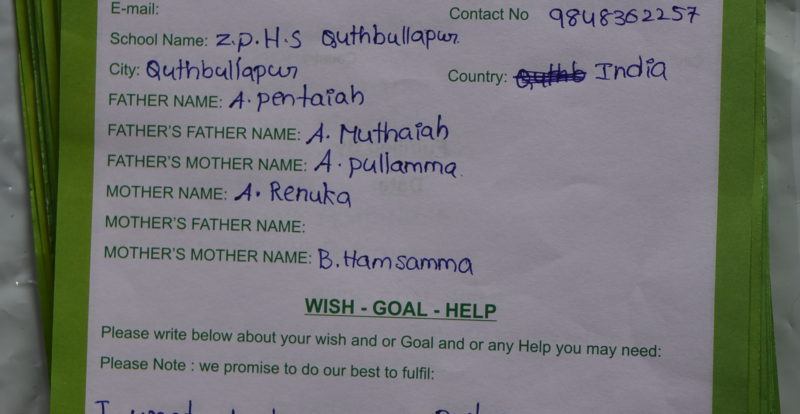 E-mail: Contact No 9848362257
School Name: Z.P.H.S Quthbullapur
City: Quthbullapur Country: India
FATHER NAME: A. Pentaiah
FATHER'S FATHER NAME: A. Muthaiah
FATHER'S MOTHER NAME: A. pullamma
MOTHER NAME: A. Renuka
MOTHER'S FATHER NAME:
MOTHER'S MOTHER NAME: B. Hamsamma
WISH - GOAL - HELP
Please write below about your wish and or Goal and or any Help you may need:
Please Note : we promise to do our best to fulfil: